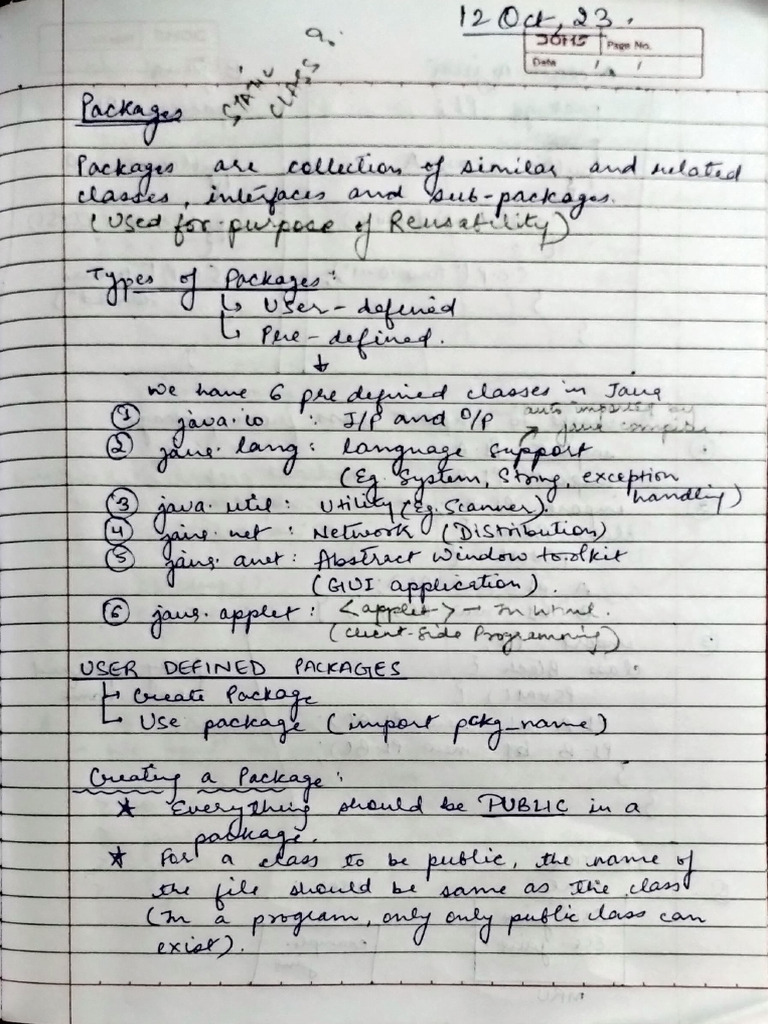 12 Oct, 23.
JOHS Page No.
Date / /
STATIC
CLASS ?
Packages
Packages are collection of similar and related
classes, interfaces and sub-packages.
(Used for purpose of Reusability)
Types of Packages:
↳ User-defined
↳ Pre-defined.
↓
We have 6 predefined classes in Java
① java.io : I/P and O/P auto imported by
② java.lang: language support java compiler
(Eg. System, String, exception
handling)
③ java.util: Utility (Eg. Scanner).
④ java.net : Network (Distribution)
⑤ java.awt: Abstract Window toolkit
(GUI application).
⑥ java.applet: <applet> - In html.
(Client-Side Programming)
USER DEFINED PACKAGES
↳ Create Package
↳ Use package (import pckg_name)
Creating a Package:
★ Everything should be PUBLIC in a
package.
★ For a class to be public, the name of
the file should be same as the class
(In a program, only only public class can
exist).